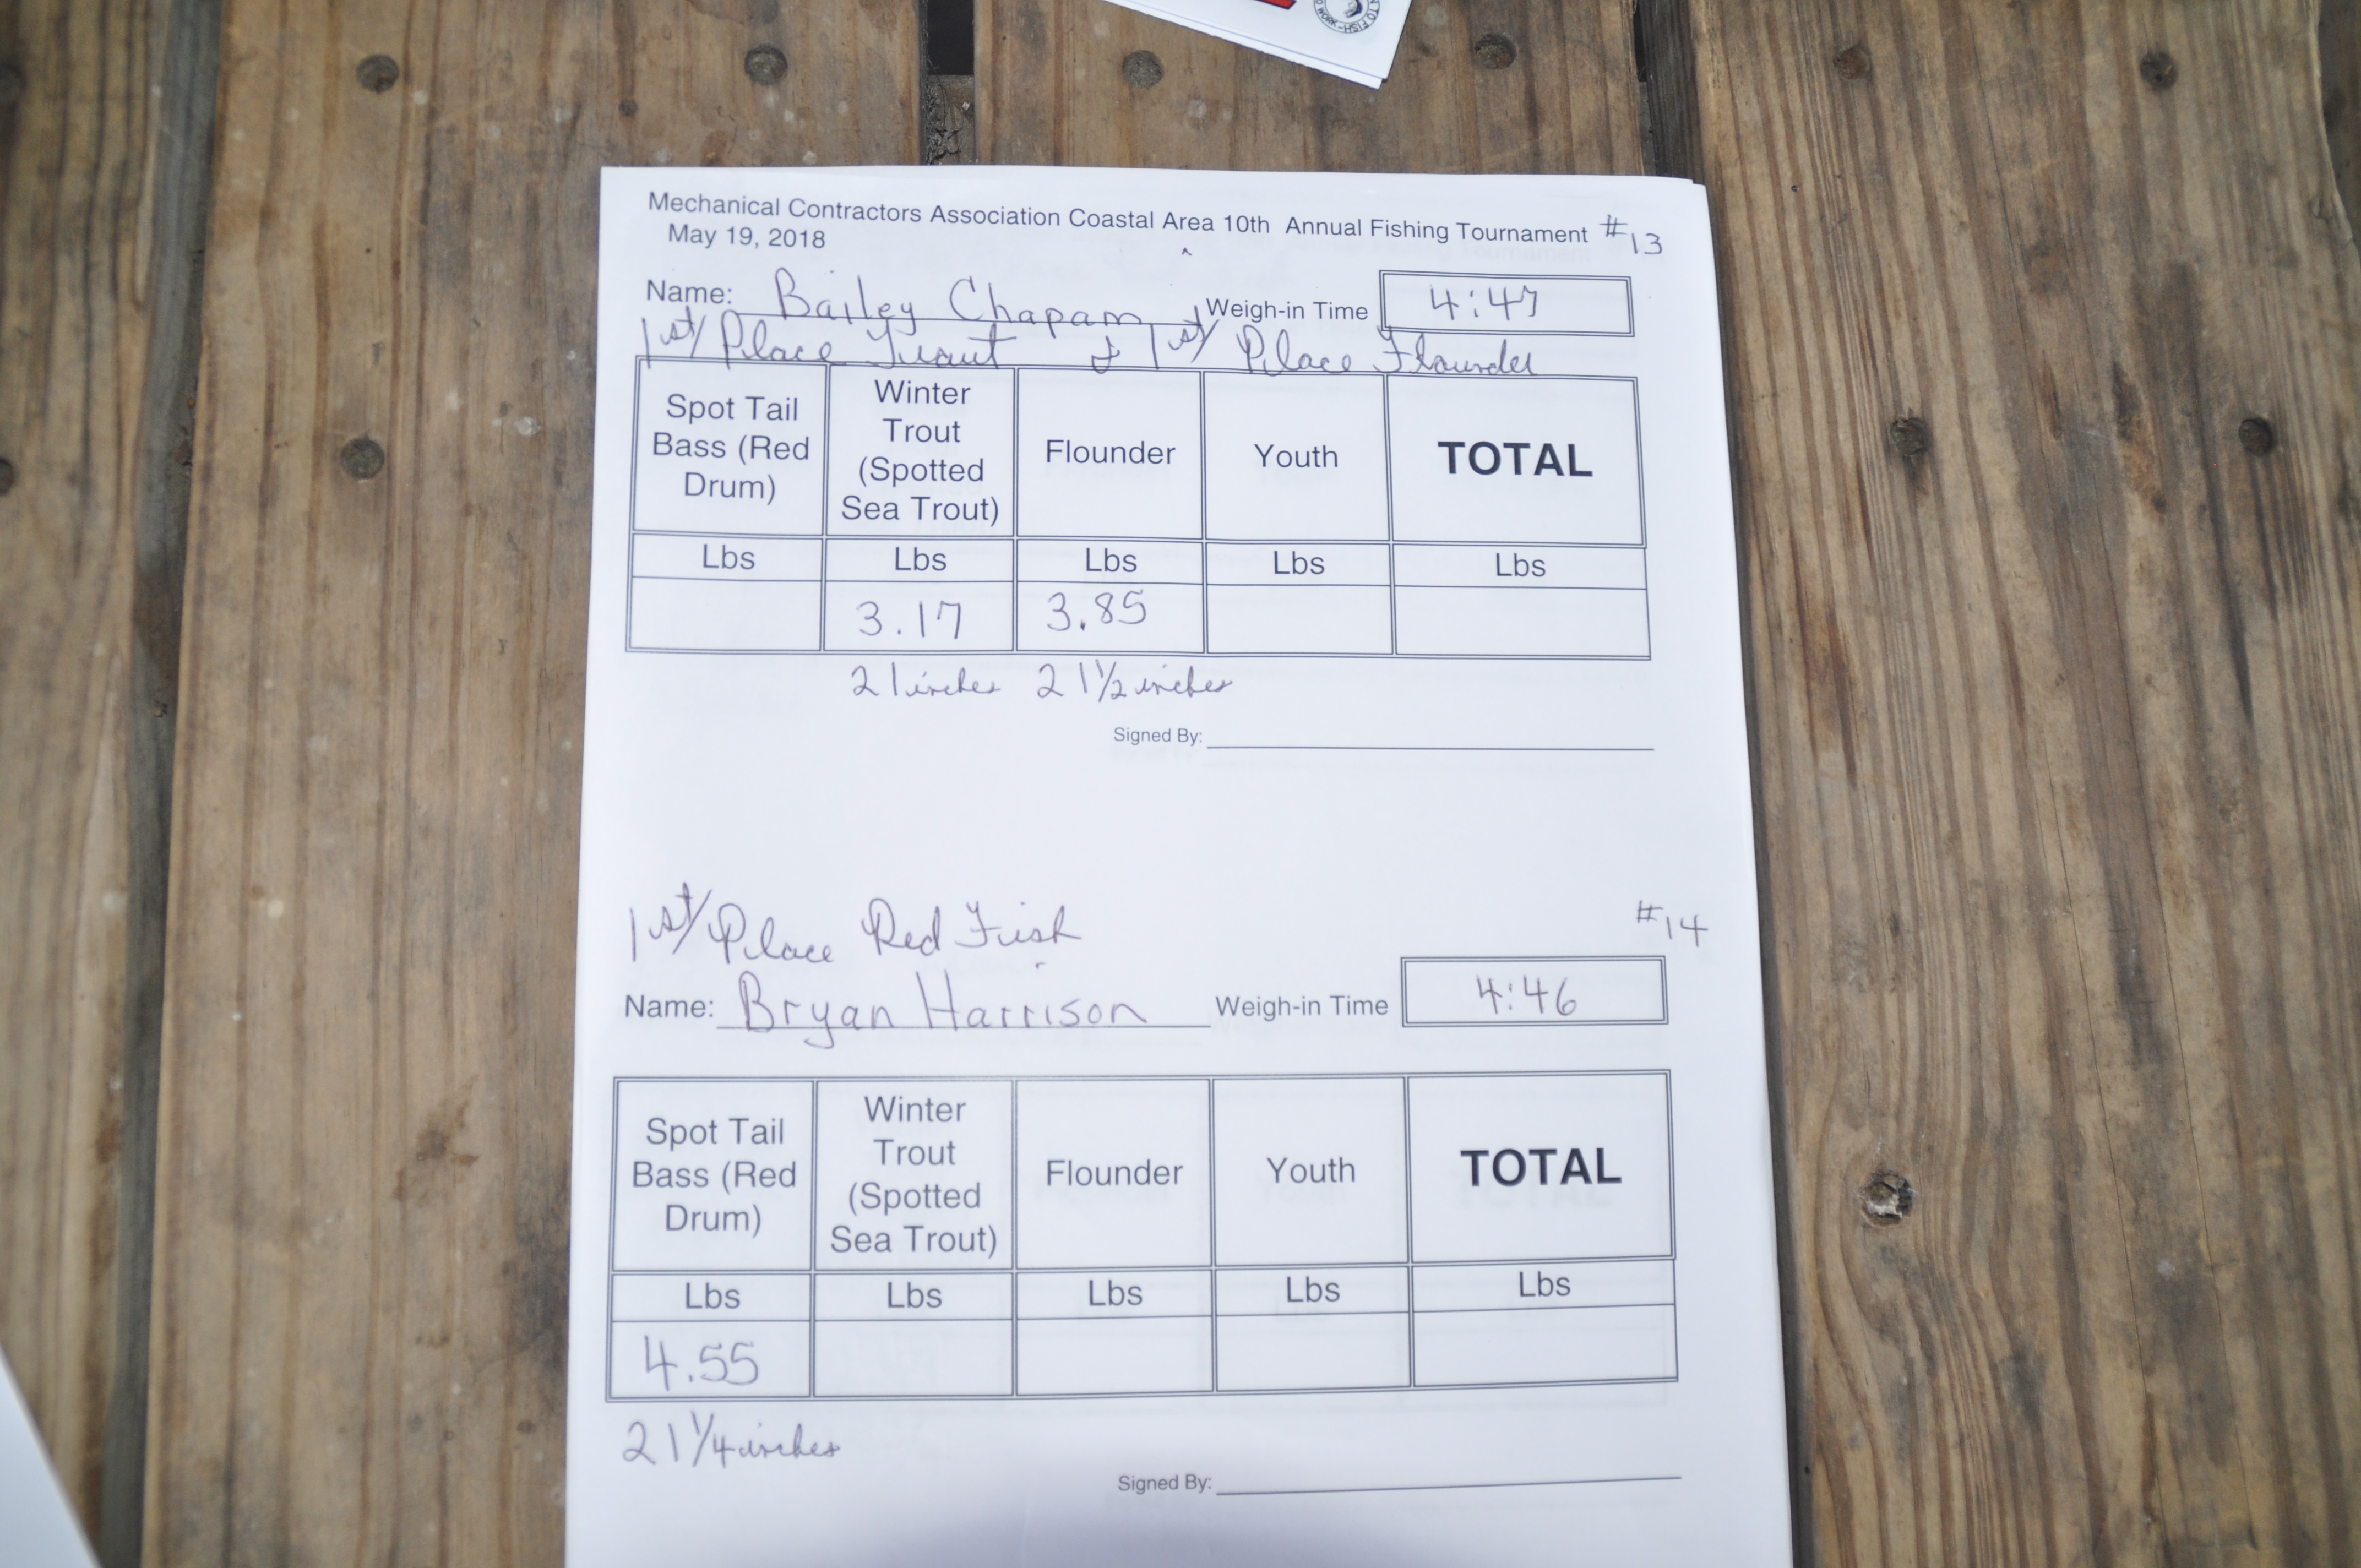 TO FISH
WORK
Mechanical Contractors Association Coastal Area 10th Annual Fishing Tournament #13
May 19, 2018
Name: Bailey Chapam Weigh-in Time 4:47
1st Place Trout & 1st Place Flounder
Spot Tail Bass (Red Drum) Winter Trout (Spotted Sea Trout) Flounder Youth TOTAL
Lbs Lbs Lbs Lbs Lbs
3.17 3.85
21 inches 21 1/2 inches
Signed By:
1st Place Red Fish #14
Name: Bryan Harrison Weigh-in Time 4:46
Spot Tail Bass (Red Drum) Winter Trout (Spotted Sea Trout) Flounder Youth TOTAL
Lbs Lbs Lbs Lbs Lbs
4.55
21 1/4 inches
Signed By: